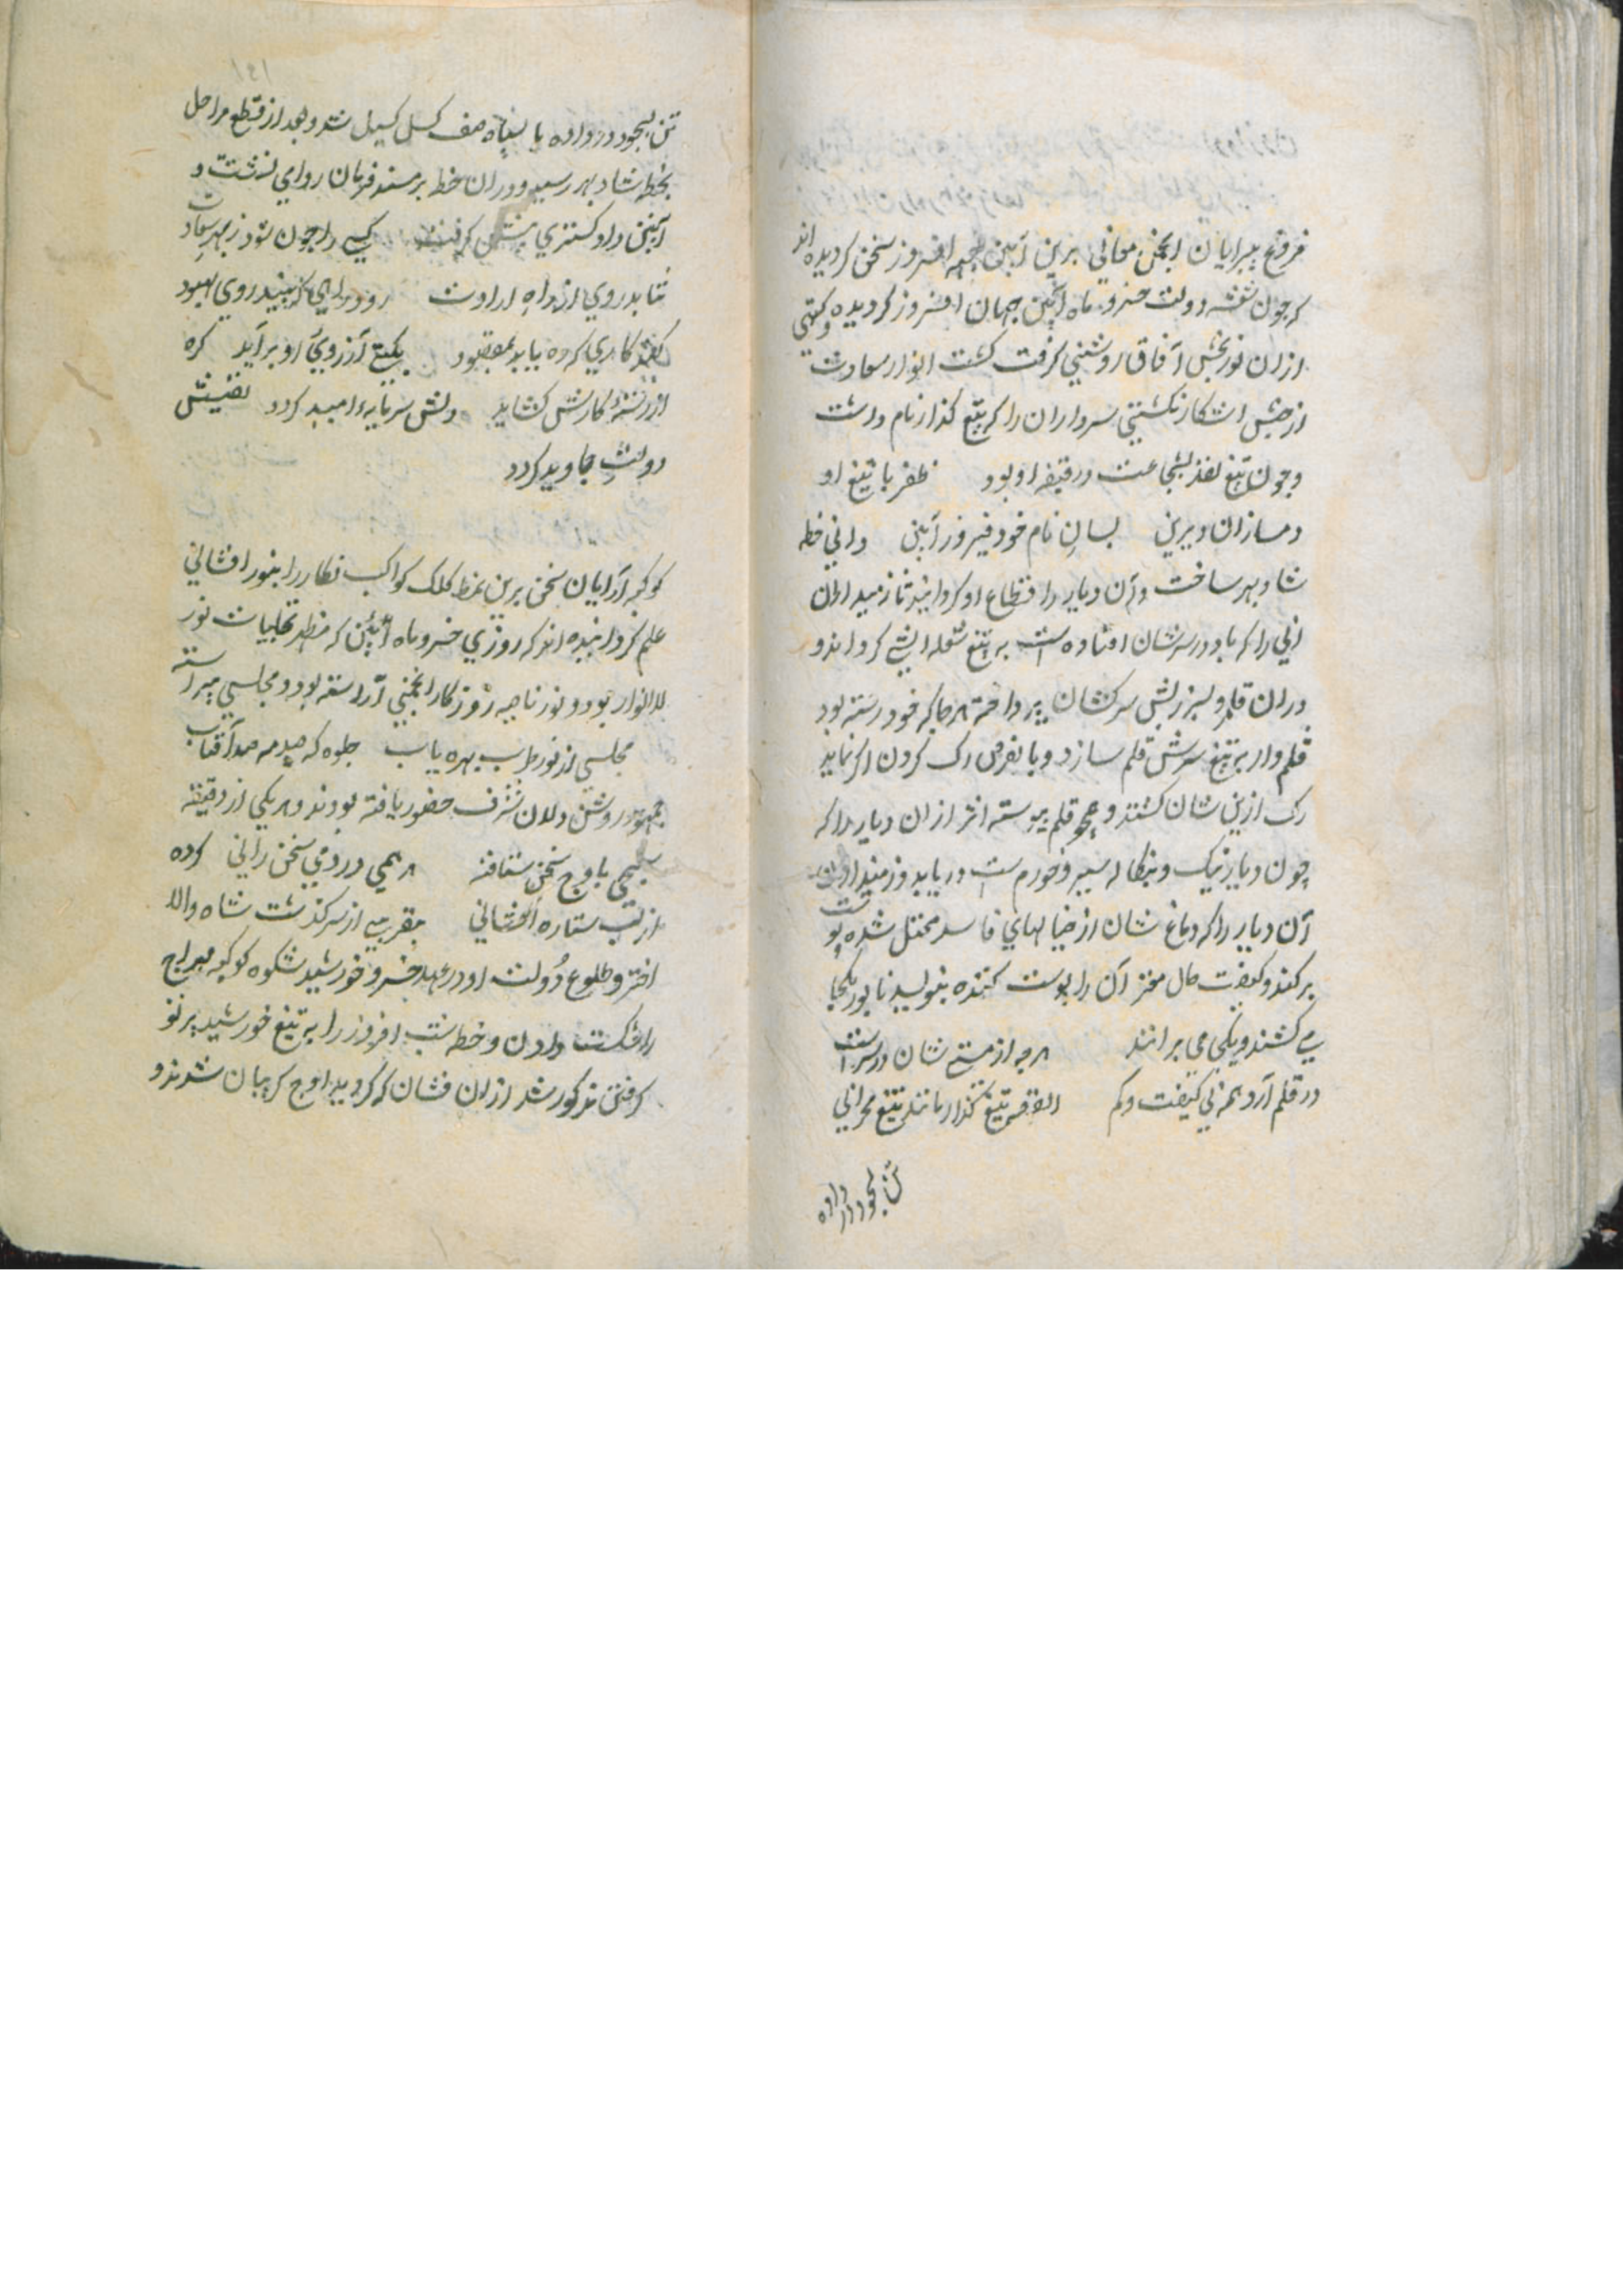 فروغ پیرایان انجمن معانی برین آیین چهره افروز سخن کردیده اند
که چون شقه دولت خسرو ماه آیین جهان افروز کردیده و کیتی
ازان نور بخش آفاق روشنی کرفت کشت انوار سعادت
از جبینش اشکار یکی سرداران را که تیغ کذار نام داشت
و چون تیغ نقد شجاعت در قبضه او بود ظفر با تیغ او
دمسازان دیرین بسان نام خود فیروز آیین والی خطه
شادبهر ساخت و آن دیار را اقطاع او کردانید تا زمیداران
انی را که باد در سرشان افتاده است به تیغ شعله آتش کرداند و
دران قلمرو بسرزنش سرکشان پرداخته هر جا که خودرسته بود
قلم وار بر تیغ سرش قلم سازد و با نقرض رک کردن اکر نماید
رک ازین شان کشند و همچو قلم پیوسته اثر ازان دیار را که
چون دیار نیک و بنکاله سیر و خورم است دریابد و زمیداران
آن دیار را که دماغ شان از خیالهای فاسد مختل شده پوست
برکند و کیفیت حال مغز آن را پوست کنده بنویسد تا بور یکجا
می کشند و یکی می برانند هر چه از مستی شان در سر است
در قلم آرد همه بی کیفیت و کم القصه تیغ کذار مانند تیغ محرابی
تن بجود در داده
تن بجود در داده با سپاه صف کسل کسیل شد و بعد از قطع مراحل
بخطه شادبهر رسید و دران خطه بر مسند فرمان روایی نشست و
آیین دادکستری پیش کرفت کسی را چون شود رهبر سعادت
نتابد روی از راه ارادت رود راهی که بیند روی بهبود
کند کاری که ره یابد بمقصود بکیتی آرزوی او برآید کره
از رشته کارش کشاید دلش سرمایه امید کردد نصیبش
دولت جاوید کردد
کوکبه آرایان سخن برین نمط کلک کواکب نکار را بنور افشانی
علم کردانیده اند که روزی خسرو ماه آیین که مظهر تجلیات نور
الانوار بود و نور ناصیه روزکار انجمنی آراسته بود و مجلسی پیراسته
مجلسی از نور طرب بهره یاب جلوه که صد مه صد آفتاب
جمهور روشن دلان شرف حضور یافته بودند و هر یکی از دقیقه
سنجی باوج سخن شتافته همی در دمی سخن رانی کرده
از لب ستاره افشانی بتقریبی از سرکذشت شاه والا
اختر و طلوع دولت او در عهد خسرو خورشید شکوه کوکبه مهراج
را شکست دادن و خطه شب افروز را به تیغ خورشید پرتو
کرفتن مذکور شد ازان فشان که کردید اوج کریبان شدند و